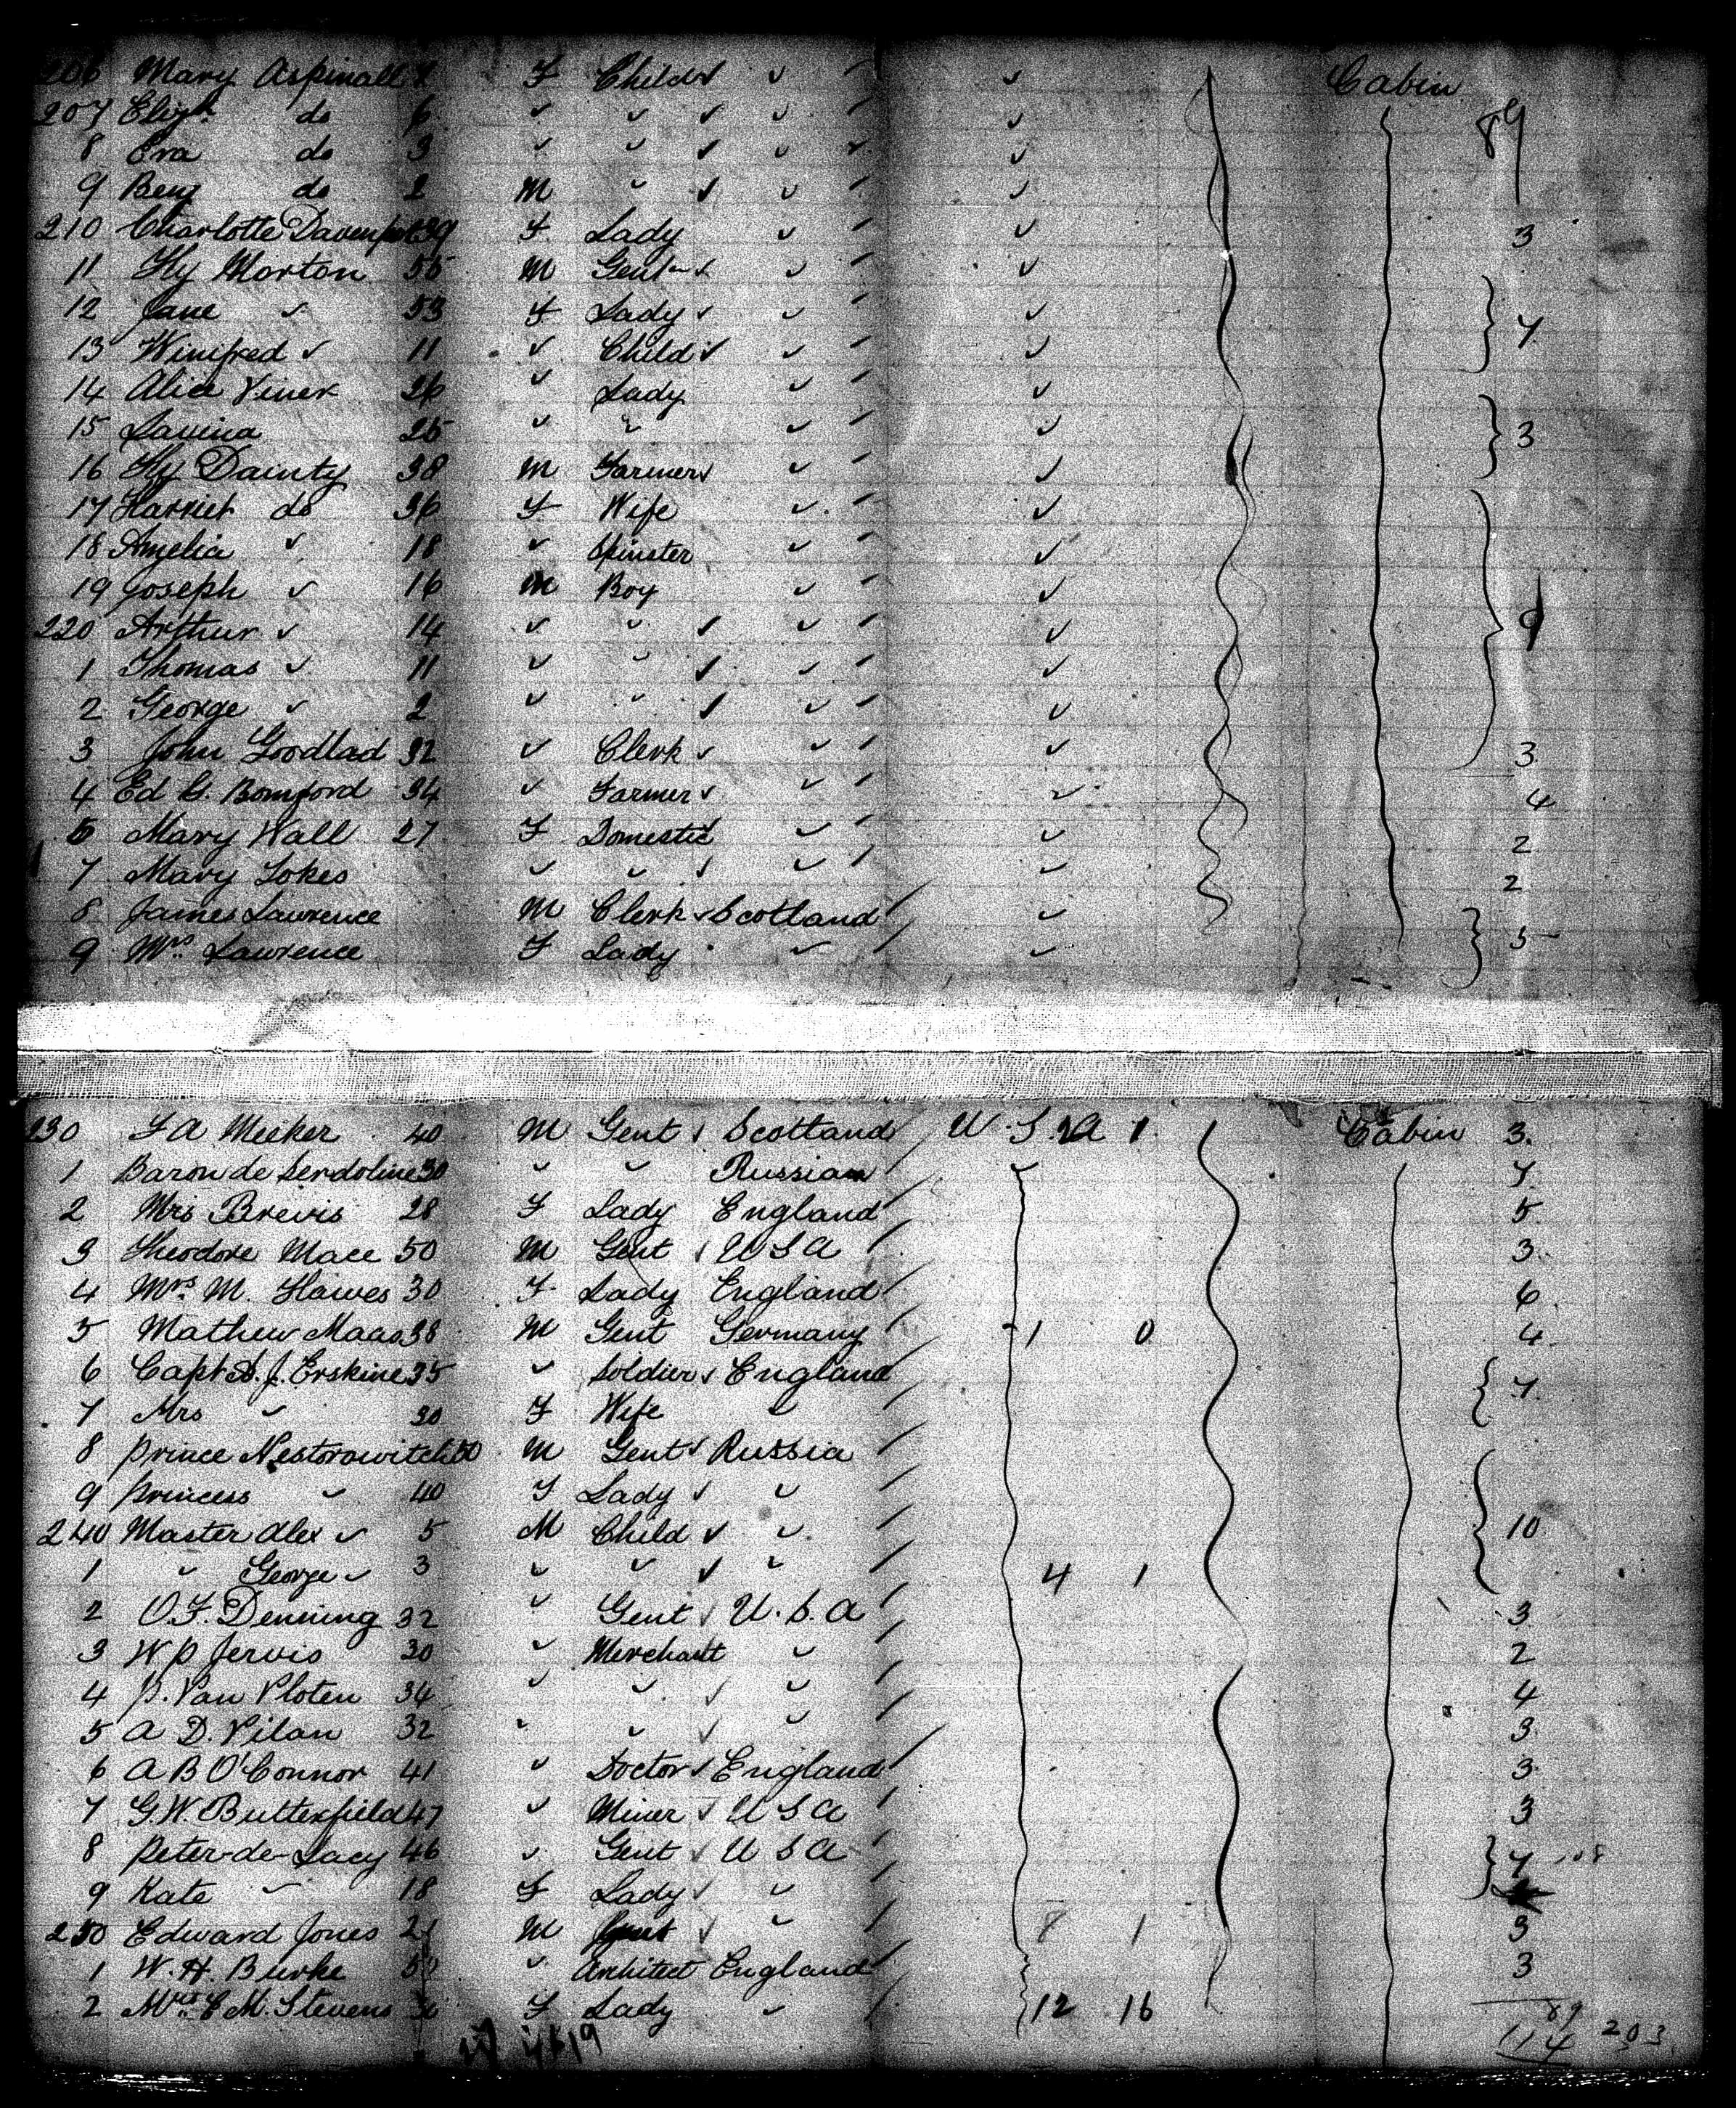 206 Mary Aspinall 7 F Child ✓ ✓ ✓ Cabin
207 Eliz do 6 ✓ ✓ ✓ ✓ ✓ 89
8 Eva do 3 ✓ ✓ ✓ ✓ ✓
9 Benj do 2 M ✓ ✓ ✓ ✓
210 Charlotte Davenport 39 F Lady ✓ 3
11 Hy Morton 55 M Gent ✓ ✓ ✓
12 Jane ✓ 53 F Lady ✓ ✓ ✓ 7
13 Winifred ✓ 11 ✓ Child ✓ ✓ ✓
14 Alice Viner 26 ✓ Lady ✓ ✓
15 Lavina 25 ✓ ✓ ✓ ✓ 3
16 Hy Dainty 38 M Farmer ✓ ✓ ✓
17 Harriet do 36 F Wife ✓ ✓
18 Amelia ✓ 18 ✓ Spinster ✓ ✓
19 Joseph ✓ 16 M Boy ✓ ✓
220 Arthur ✓ 14 ✓ ✓ ✓ ✓ ✓
1 Thomas ✓ 11 ✓ ✓ ✓ ✓ ✓
2 George ✓ 2 ✓ ✓ ✓ ✓ ✓
3 John Goodlad 32 ✓ Clerk ✓ ✓ ✓ 3
4 Ed G. Bomford 34 ✓ Farmer ✓ ✓ ✓ 4
5 Mary Wall 27 F Domestic ✓ ✓ 2
7 Mary Lokes ✓ ✓ ✓ ✓ ✓ 2
8 James Lawrence M Clerk ✓ Scotland ✓
9 Mrs. Lawrence F Lady ✓ ✓ 5
230 F A Meeker 40 M Gent Scotland U.S.A 1 Cabin 3.
1 Baron de Serdoline 30 ✓ ✓ Russian ✓ 7.
2 Mrs Brevis 28 F Lady England 5.
3 Theodore Mace 50 M Gent U S A 3.
4 Mrs. M. Hawes 30 F Lady England 6.
5 Mathew Maas 38 M Gent Germany 1 0 4.
6 Capt A. J. Erskine 35 ✓ Soldier ✓ England
7 Mrs ✓ 30 F Wife ✓ 7.
8 Prince Nestorowitch 50 M Gent ✓ Russia
9 Princess ✓ 40 F Lady ✓ ✓
240 Master Alex ✓ 5 M Child ✓ ✓ 10
1 ✓ George ✓ 3 ✓ ✓ ✓ ✓ 4 1
2 O. F. Denning 32 ✓ Gent U.S.A 3.
3 W P Jervis 30 ✓ Merchant ✓ 2
4 P. Van Vloten 34 ✓ ✓ ✓ ✓ 4
5 A D. Vilan 32 ✓ ✓ ✓ ✓ 3.
6 A B O'Connor 41 ✓ Doctor ✓ England 3.
7 G. W. Butterfield 47 ✓ Miner ✓ U S A 3
8 Peter-de-Lacy 46 ✓ Gent ✓ U S A 7
9 Kate ✓ 18 F Lady ✓ ✓
250 Edward Jones 21 M Gent ✓ ✓ 8 1 3
1 W. H. Burke ✓ Architect England 3
2 Mrs E M. Stevens F Lady ✓ 12 16
89
114 203